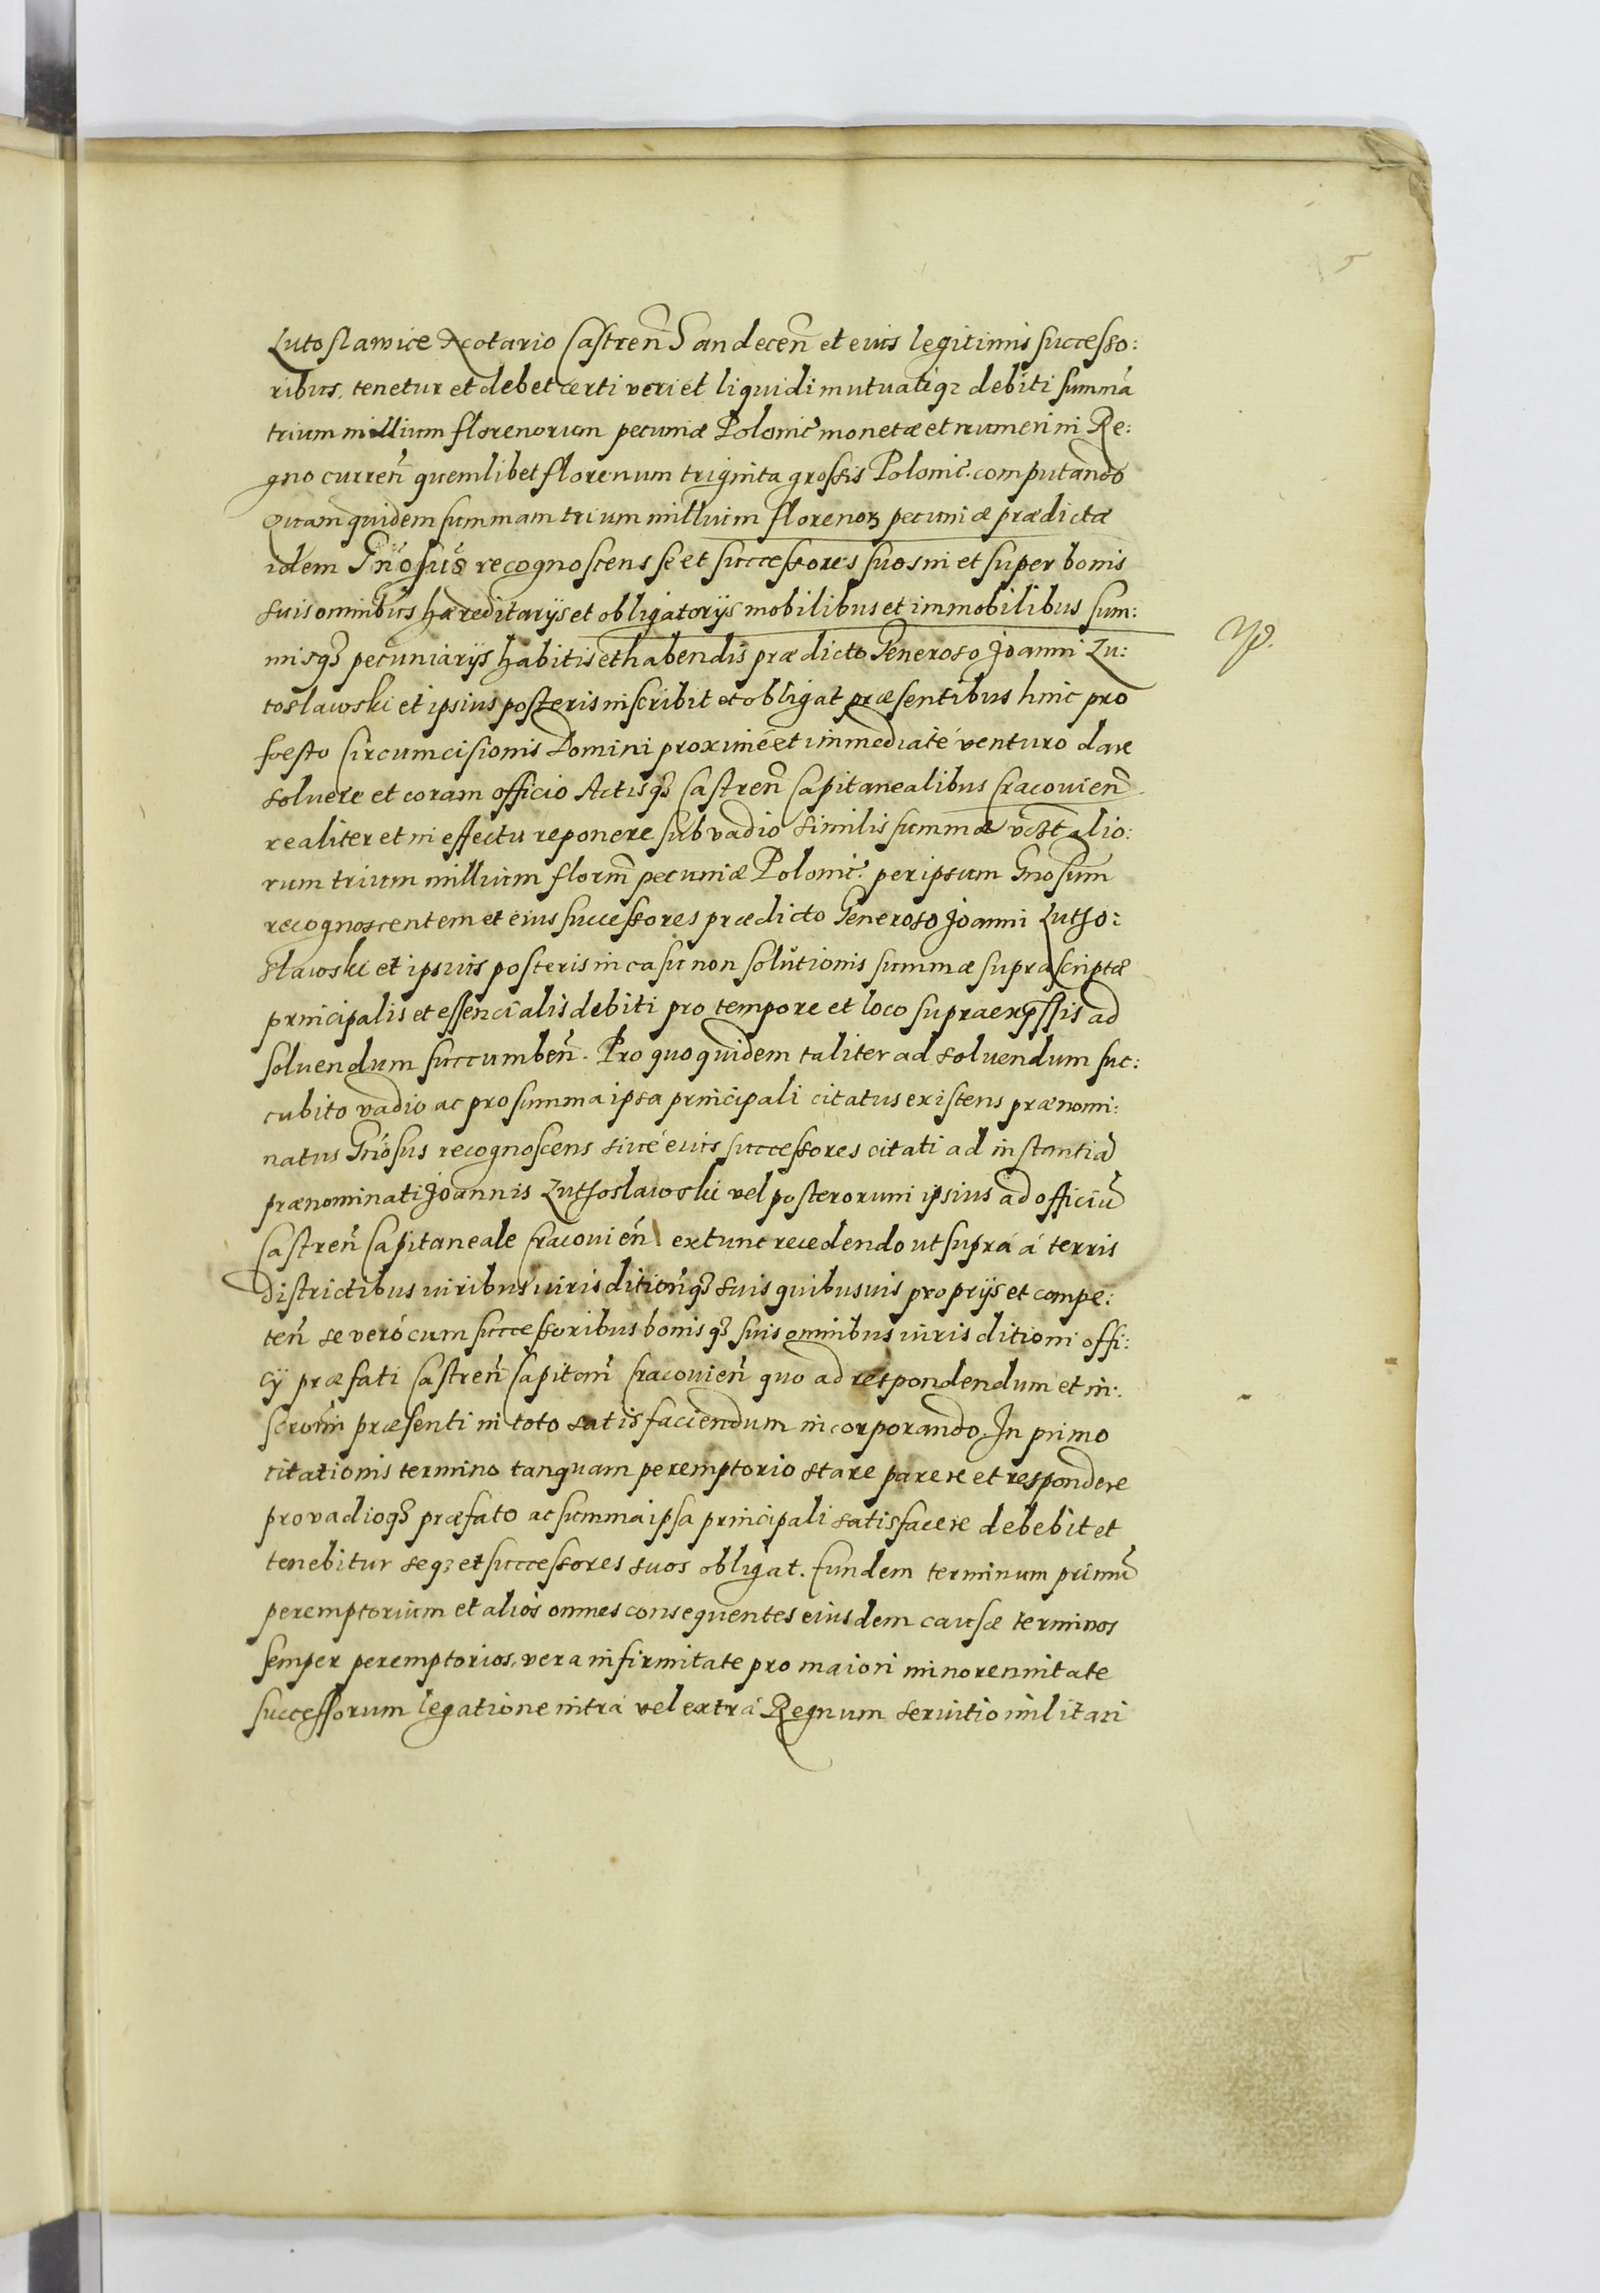 5
Lutoslawice Notario Castren̄ Sandecen̄ et eius legitimis successo:
ribus, tenetur et debet certi veri et liquidi mutuatiq3 debiti summā
trium millium florenorum pecuniæ Polonic̄ monetæ et numeri in Re:
gno curren̄ quemlibet florenum triginta grossis Polonic̄. computando
Quam quidem summam trium millium florenoꝝ pecuniæ prædictæ
idem Gn̄osus recognoscens se et successores suos in et super bonis
suis omnibus hæreditarijs et obligatorijs mobilibus et immobilibus sum:
misq3 pecuniarijs habitis et habendis prædicto Generoso Joanni Lu:
toslawski et ipsius posteris inscribit et obligat præsentibus hinc pro
festo Circumcisionis Domini proximè et immediatè venturo dare
soluere et coram officio Actisq3 Castren̄ Capitanealibus Cracouien̄
realiter et in effectu reponere sub vadio similis summæ alio:
rum trium millium florn̄ pecuniæ Polonic̄. per ipsum Gnosum
recognoscentem et eius successores prædicto Generoso Joanni Lutho:
slawski et ipsius posteris in casu non solutionis summæ suprascriptæ
principalis et essencialis debiti pro tempore et loco supraexp̄ssis ad
soluendum succumben̄. Pro quo quidem taliter ad soluendum suc:
cubito vadio ac pro summa ipsa principali citatus existens prænomi:
natus Gn̄osus recognoscens siue eius successores citati ad instantiā
prænominati Joannis Luthoslawski vel posterorum ipsius ad officiū
Castren̄ Capitaneale Cracouien̄ extunc recedendo ut supra á terris
districtibus iuribus iurisditionq3 suis quibusuis proprijs et compe:
ten̄ se veró cum successoribus bonisq3 suis omnibus iurisditioni offi:
cij præfati Castren̄ Capitan̄ Cracouien̄ quo ad respondendum et in:
scrōni præsenti in toto satisfaciendum incorporando. In primo
citationis termino tanquam peremptorio stare parere et respondere
pro vadioq3 præfato ac summa ipsa principali satisfacere debebit et
tenebitur seq3 et successores suos obligat. Eundem terminum primū
peremptorium et alios omnes consequentes eiusdem causæ terminos
semper peremptorios, vera infirmitate pro maiori minorennitate
successorum legatione intra vel extra Regnum seruitio militari